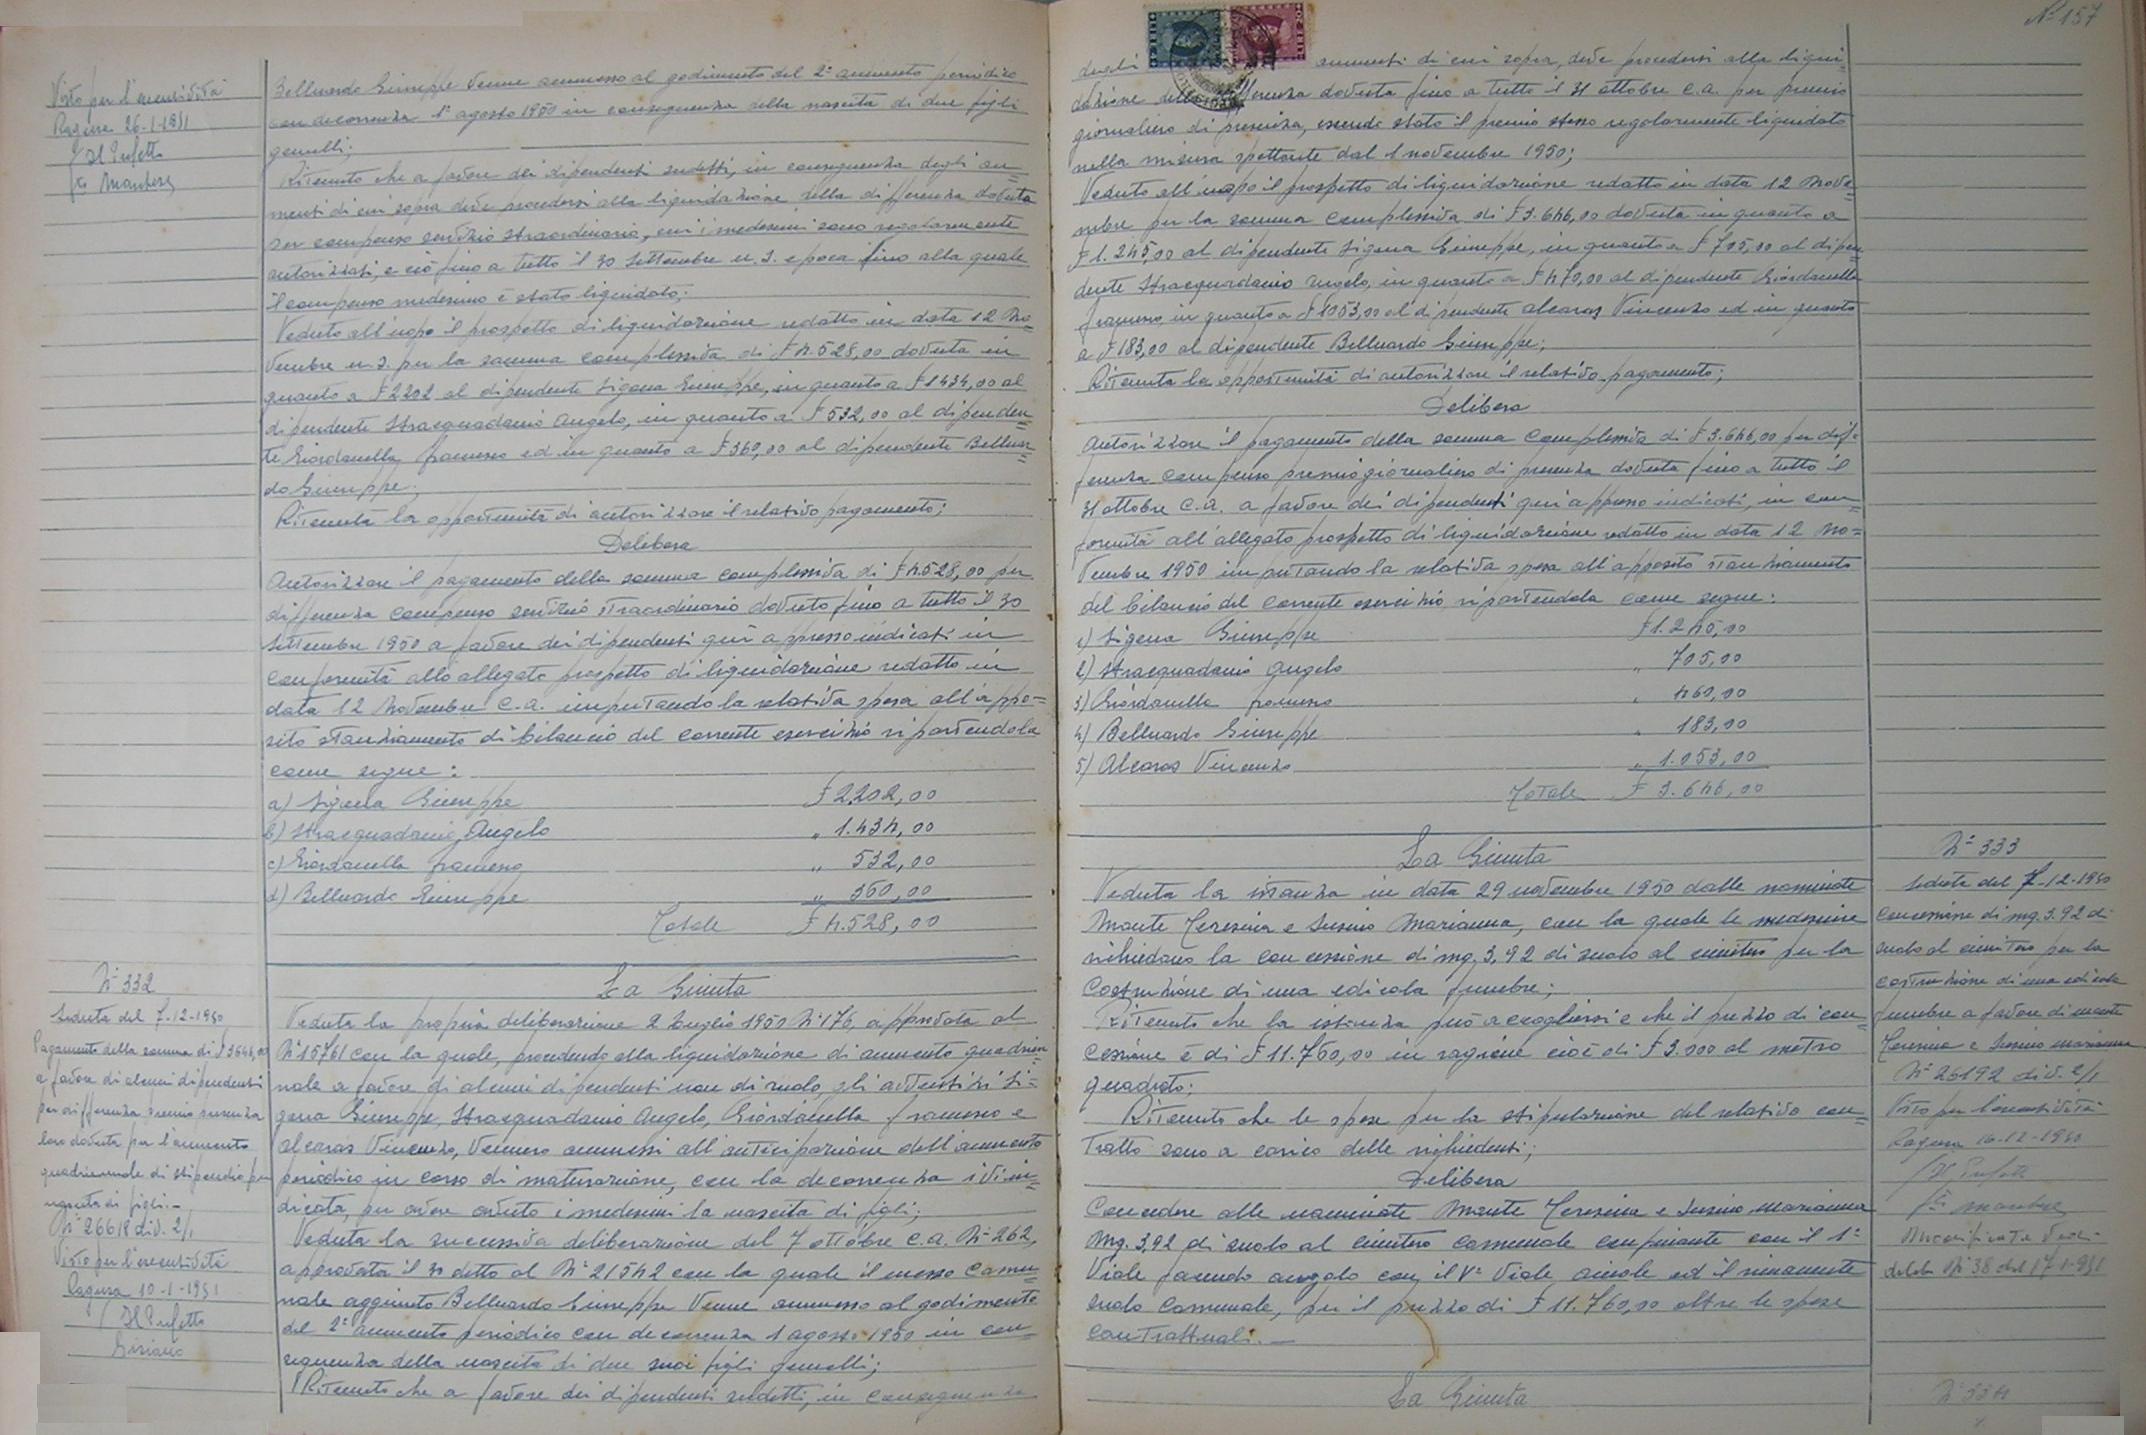 Visto per l'esecutività
Ragusa 26-1-1951
Il Prefetto
Belluardo Giuseppe venne ammesso al godimento del 2° aumento periodico
con decorrenza 1° agosto 1950 in conseguenza della nascita di due figli
gemelli;
Ritenuto che a favore dei dipendenti sudetti, in conseguenza degli au=
menti di cui sopra deve procedersi alla liquidazione della differenza dovuta
per compenso servizio straordinario, cui i medesimi sono regolarmente
autorizzati, e ciò fino a tutto il 30 Settembre u.s. epoca fino alla quale
il compenso medesimo è stato liquidato;
Veduto all'uopo il prospetto di liquidazione redatto in data 12 No=
vembre u.s. per la somma complessiva di £ 4.528,00 dovuta in
quanto a £ 2202 al dipendente Ligena Giuseppe, in quanto a £ 1434,00 al
dipendente Stracquadanio Angelo, in quanto a £ 532,00 al dipenden=
te Giordanella Francesco ed in quanto a £ 360,00 al dipendente Belluar=
do Giuseppe;
Ritenuta la opportunità di autorizzare il relativo pagamento;
Delibera
Autorizzare il pagamento della somma complessiva di £ 4.528,00 per
differenza compenso servizio straordinario dovuto fino a tutto il 30
Settembre 1950 a favore dei dipendenti qui appresso indicati in
conformità allo allegato prospetto di liquidazione redatto in
data 12 Novembre c.a. imputando la relativa spesa all'appo=
sito stanziamento di bilancio del corrente esercizio ripartendola
come segue:
a) Ligena Giuseppe £ 2202,00
b) Stracquadanio Angelo " 1.434,00
c) Giordanella Francesco " 532,00
d) Belluardo Giuseppe " 360,00
Totale £ 4.528,00
N° 332
Seduta del 7-12-1950
Pagamento della somma di £ 3646,00
a favore di alcuni dipendenti
per differenza premio presenza
loro dovuta per l'aumento
quadriennale di stipendio per
nascita di figli.-
N° 26618 div. 2/1
Visto per l'esecutività
Ragusa 10-1-1951
Il Prefetto
La Giunta
Veduta la propria deliberazione 2 Luglio 1950 N° 176, approvata al
N° 15761 con la quale, procedendo alla liquidazione di aumento quadrien=
nale a favore di alcuni dipendenti non di ruolo, gli avventizi Li=
gena Giuseppe, Stracquadanio Angelo, Giordanella Francesco e
Alcaras Vincenzo, vennero ammessi all'anticipazione dell'aumento
periodico in corso di maturazione, con la decorrenza ivi in=
dicata, per avere avuto i medesimi la nascita di figli;
Veduta la successiva deliberazione del 7 ottobre c.a. N° 262,
approvata il 30 detto al N° 21542 con la quale il messo Comu=
nale aggiunto Belluardo Giuseppe venne ammesso al godimento
del 2° aumento periodico con decorrenza 1 agosto 1950 in con=
seguenza della nascita di due suoi figli gemelli;
Ritenuto che a favore dei dipendenti sudetti, in conseguenza
N° 157
degli aumenti di cui sopra, deve procedersi alla liqui=
dazione della differenza dovuta fino a tutto il 31 ottobre c.a. per premio
giornaliero di presenza, essendo stato il premio stesso regolarmente liquidato
nella misura spettante dal 1 novembre 1950;
Veduto all'uopo il prospetto di liquidazione redatto in data 12 Nove=
mbre per la somma complessiva di £ 3.646,00 dovuta in quanto a
£ 1.245,00 al dipendente Ligena Giuseppe, in quanto a £ 705,00 al dipen=
dente Stracquadanio Angelo, in quanto a £ 470,00 al dipendente Giordanella
Francesco, in quanto a £ 1053,00 al dipendente Alcaras Vincenzo ed in quanto
a £ 183,00 al dipendente Belluardo Giuseppe;
Ritenuta la opportunità di autorizzare il relativo pagamento;
Delibera
Autorizzare il pagamento della somma complessiva di £ 3.646,00 per dif=
ferenza compenso premio giornaliero di presenza dovuta fino a tutto il
31 ottobre c.a. a favore dei dipendenti qui appresso indicati, in con=
formità all'allegato prospetto di liquidazione redatto in data 12 No=
vembre 1950 imputando la relativa spesa all'apposito stanziamento
del bilancio del corrente esercizio ripartendola come segue:
1) Ligena Giuseppe £ 1.245,00
2) Stracquadanio Angelo " 705,00
3) Giordanella Francesco " 460,00
4) Belluardo Giuseppe " 183,00
5) Alcaras Vincenzo " 1.053,00
Totale £ 3.646,00
La Giunta
Veduta la istanza in data 29 novembre 1950 dalle nominate
Monte Teresina e Susino Marianna, con la quale le medesime
richiedono la concessione di mq. 3,92 di suolo al cimitero per la
costruzione di una edicola funebre;
Ritenuto che la istanza può accogliersi e che il prezzo di con=
cessione è di £ 11.760,00 in ragione cioè di £ 3.000 al metro
quadrato;
Ritenuto che le spese per la stipulazione del relativo con=
tratto sono a carico delle richiedenti;
Delibera
Concedere alle nominate Monte Teresina e Susino Marianna
mq. 3,92 di suolo al cimitero comunale confinante con il 1°
viale facendo angolo con il V° viale, ed il rimanente
suolo Comunale, per il prezzo di £ 11.760,00 oltre le spese
contrattuali.-
La Giunta
N° 333
Seduta del 7-12-1950
Concessione di mq. 3.92 di
suolo al cimitero per la
costruzione di una edicola
funebre a favore di Monte
Teresina e Susino Marianna
N° 26192 div. 2/1
Visto per l'esecutività
Ragusa 16-12-1950
Il Prefetto
delib. N° 38 del 17-1-951
N° 334